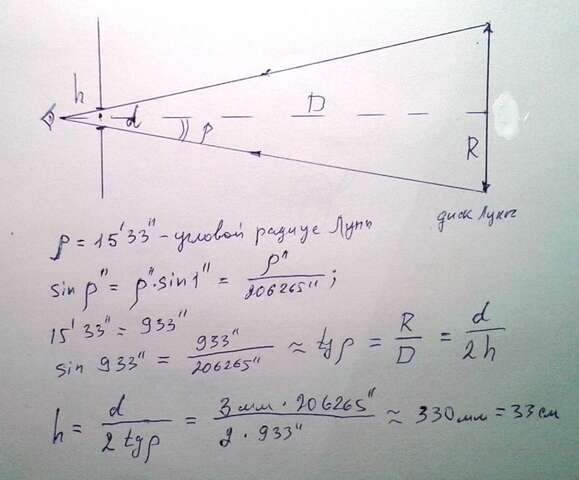 h
d
D
ρ
R
диск Луны
ρ = 15' 33" - угловой радиус Луны
sin ρ" = ρ"·sin 1" = ρ" / 206265" ;
15' 33" = 933"
sin 933" = 933" / 206265" ≈ tg ρ = R / D = d / 2h
h = d / 2 tg ρ = 3 мм · 206265" / 2 · 933" ≈ 330 мм = 33 см